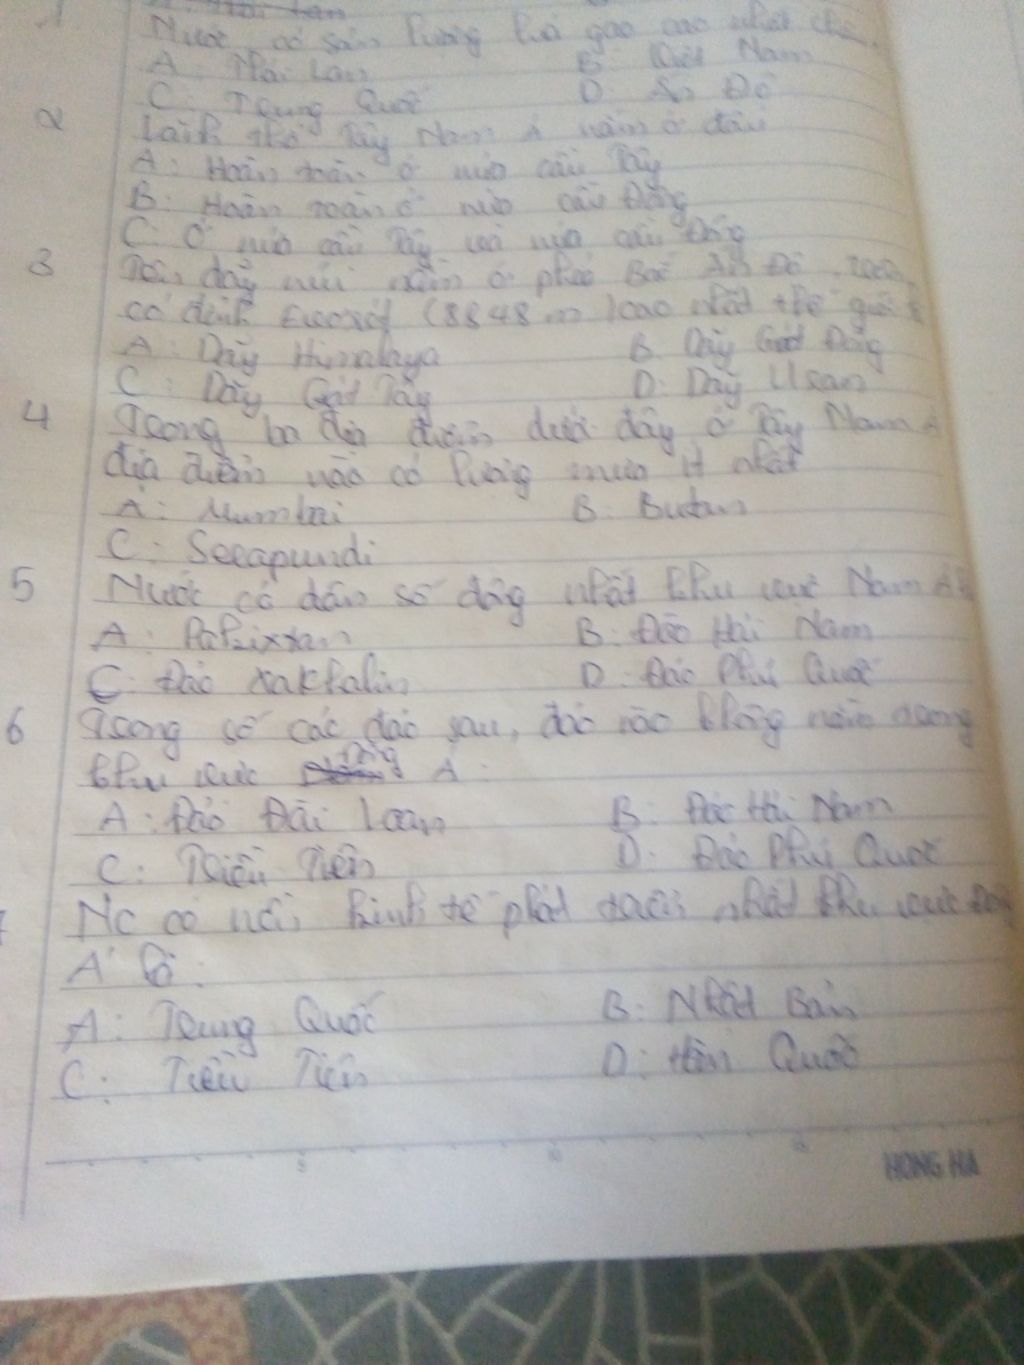 1
Nước có sản lượng lúa gạo cao nhất
A: Thái Lan B: Việt Nam
C: Trung Quốc D: Ấn Độ
2 Lãnh thổ Tây Nam Á nằm ở đâu
A: Hoàn toàn ở nửa cầu Tây
B: Hoàn toàn ở nửa cầu Đông
C: Ở nửa cầu Tây và nửa cầu Đông
3 Tên dãy núi nằm ở phía Bắc Ấn Độ
có đỉnh (8848 m) cao nhất thế giới
A: Dãy Himalaya B: Dãy Gát Đông
C: Dãy Gát Tây D: Dãy Uran
4 Trong ba địa điểm dưới đây ở Tây Nam Á
địa điểm nào có lượng mưa ít nhất
A: Mumbai B: Butan
C: Serapundi
5 Nước có dân số đông nhất khu vực Nam Á
A: Pakixtan B: Đảo Hải Nam
C: Đảo Xakhalin D: Đảo Phú Quốc
6 Trong số các đảo sau, đảo nào không nằm trong
khu vực Đông Á:
A: Đảo Đài Loan B: Đảo Hải Nam
C: Triều Tiên D: Đảo Phú Quốc
7 Nc có nền kinh tế phát triển nhất khu vực Đông
Á là:
A: Trung Quốc B: Nhật Bản
C: Triều Tiên D: Hàn Quốc
5 10 15
HONG HA